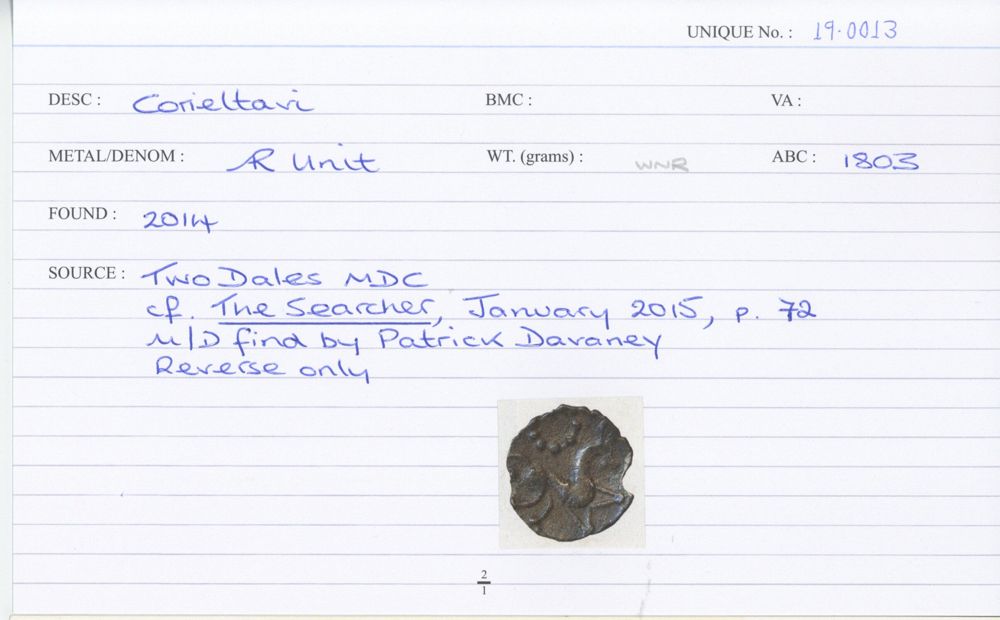 UNIQUE No. : 19.0013
DESC : Corieltavi BMC : VA :
METAL/DENOM : AR Unit WT. (grams) : WNR ABC : 1803
FOUND : 2014
SOURCE : Two Dales MDC
cf. The Searcher, January 2015, p. 72
M/D find by Patrick Davaney
Reverse only
2
1